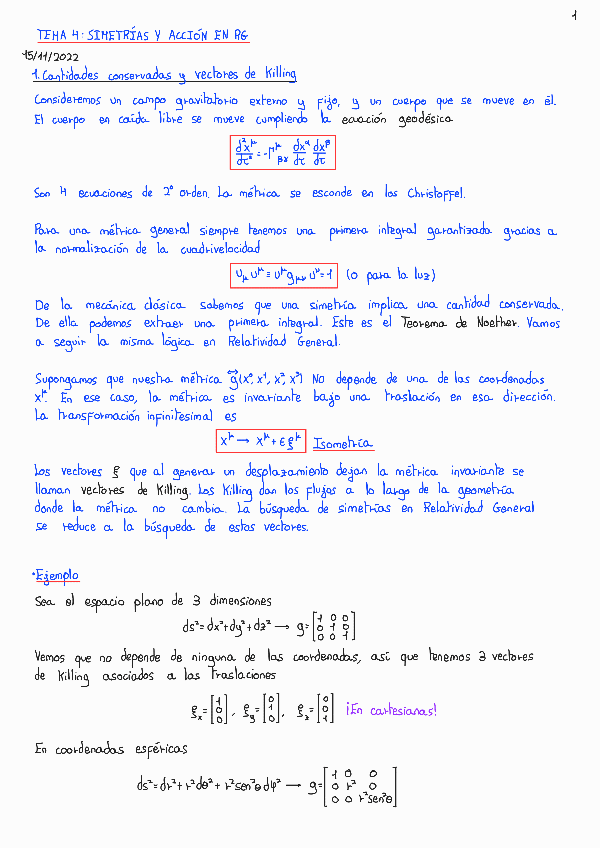 1
TEMA 4: SIMETRÍAS Y ACCIÓN EN RG
15/11/2022
1. Cantidades conservadas y vectores de Killing
Consideremos un campo gravitatorio externo y fijo, y un cuerpo que se mueve en él.
El cuerpo en caída libre se mueve cumpliendo la ecuación geodésica
d²x^μ/dτ² = -Γ^μ_βα dx^α/dτ dx^β/dτ
Son 4 ecuaciones de 2º orden. La métrica se esconde en los Christoffel.
Para una métrica general siempre tenemos una primera integral garantizada gracias a
la normalización de la cuadrivelocidad
u_μ u^μ = u^μ g_μν u^ν = 1 (0 para la luz)
De la mecánica clásica sabemos que una simetría implica una cantidad conservada.
De ella podemos extraer una primera integral. Este es el Teorema de Noether. Vamos
a seguir la misma lógica en Relatividad General.
Supongamos que nuestra métrica g(x⁰, x¹, x², x³) NO depende de una de las coordenadas
x^μ. En ese caso, la métrica es invariante bajo una traslación en esa dirección.
La transformación infinitesimal es
x^μ → x^μ + ε ξ^μ Isometría
Los vectores ξ que al generar un desplazamiento dejan la métrica invariante se
llaman vectores de Killing. Los Killing dan los flujos a lo largo de la geometría
donde la métrica no cambia. La búsqueda de simetrías en Relatividad General
se reduce a la búsqueda de estos vectores.
·Ejemplo
Sea el espacio plano de 3 dimensiones
ds² = dx² + dy² + dz² → g = [1 0 0; 0 1 0; 0 0 1]
Vemos que no depende de ninguna de las coordenadas, así que tenemos 3 vectores
de Killing asociados a las traslaciones
ξ_x = [1 0 0], ξ_y = [0 1 0], ξ_z = [0 0 1] ¡En cartesianas!
En coordenadas esféricas
ds² = dr² + r²dθ² + r²sen²θ dφ² → g = [1 0 0; 0 r² 0; 0 0 r²sen²θ]